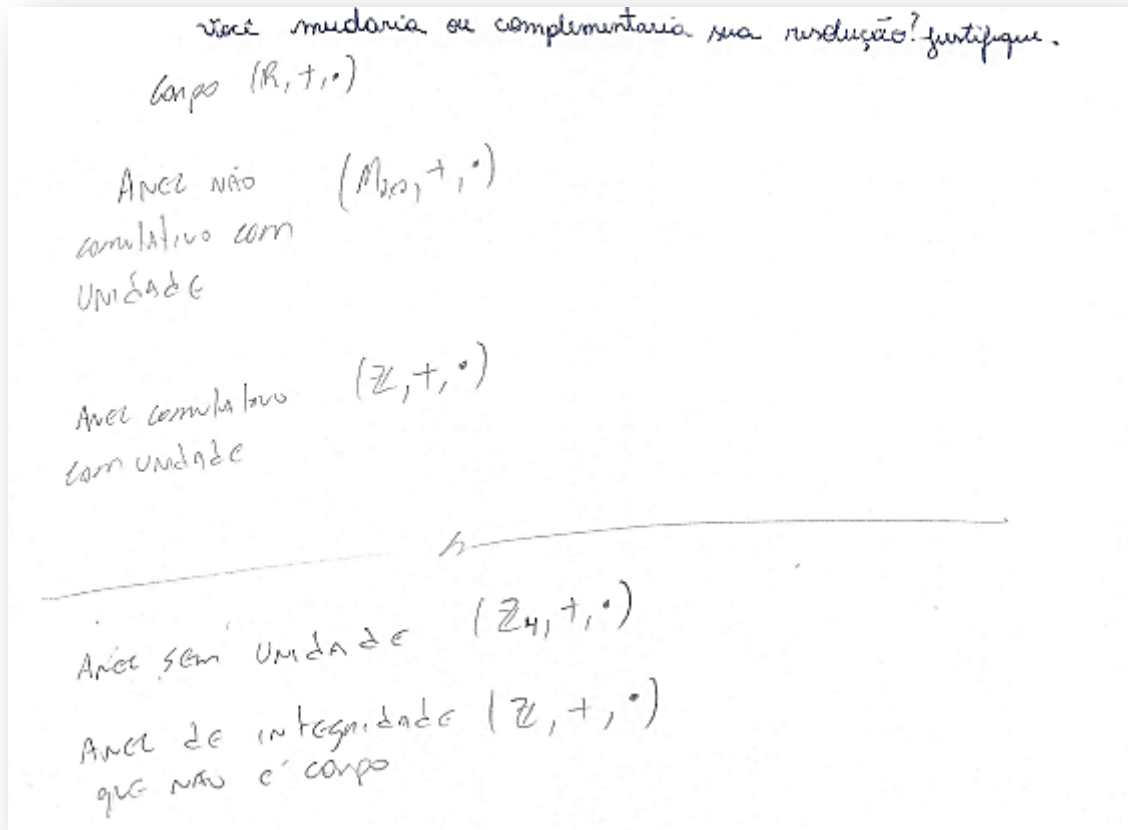 Você mudaria ou complementaria sua resolução? Justifique.
Corpo (R, +, •)
ANEL NÃO (M₂ₓ₂, +, •)
comutativo com
UNIDADE
ANEL comutativo (ℤ, +, •)
com UNIDADE
ANEL SEM UNIDADE (ℤ₄, +, •)
ANEL DE INTEGRIDADE (ℤ, +, •)
QUE NÃO É CORPO